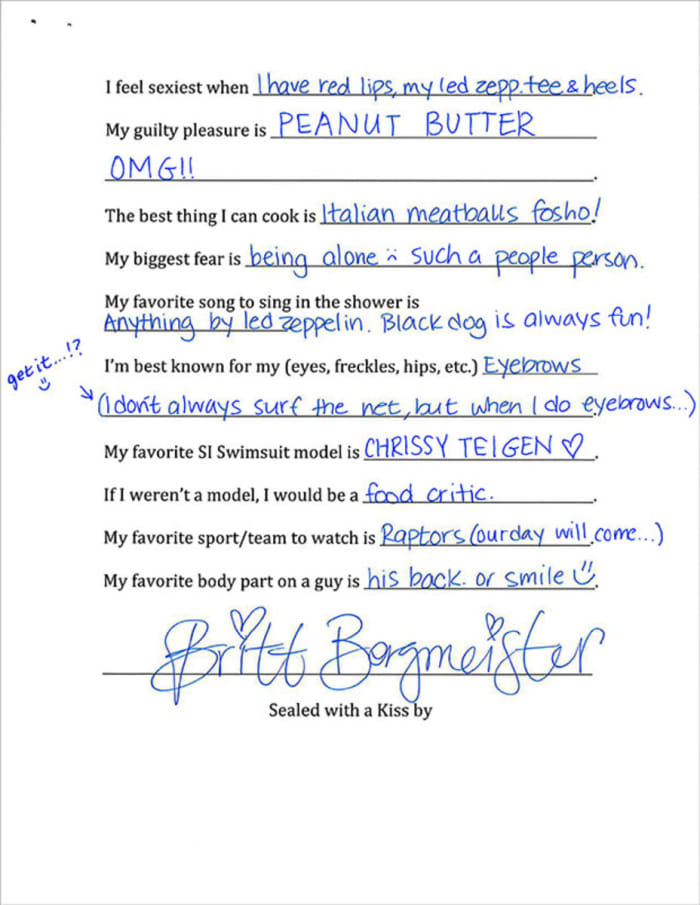 I feel sexiest when I have red lips, my led zepp. tee & heels.
My guilty pleasure is PEANUT BUTTER
OMG!!.
The best thing I can cook is Italian meatballs fosho!
My biggest fear is being alone :( such a people person.
My favorite song to sing in the shower is
Anything by led zeppelin. Black dog is always fun!
get it...!?
I'm best known for my (eyes, freckles, hips, etc.) Eyebrows
(I don't always surf the net, but when I do eyebrows...)
My favorite SI Swimsuit model is CHRISSY TEIGEN ♡.
If I weren't a model, I would be a food critic.
My favorite sport/team to watch is Raptors (our day will come...)
My favorite body part on a guy is his back. or smile :).
Britt Bergmeister
Sealed with a Kiss by